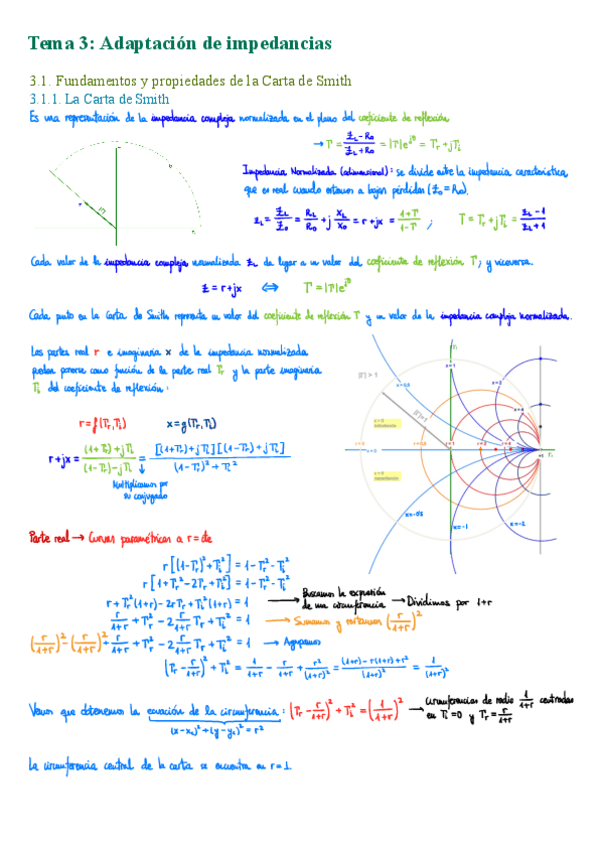 Tema 3: Adaptación de impedancias
3.1. Fundamentos y propiedades de la Carta de Smith
3.1.1. La Carta de Smith
Es una representación de la impedancia compleja normalizada en el plano del coeficiente de reflexión
→ Γ = (Z_L - R_0)/(Z_L + R_0) = |Γ|e^{jθ} = Γr + jΓi
Impedancia Normalizada (adimensional): se divide entre la impedancia característica,
que es real cuando estamos a bajas pérdidas (Z_0 = R_0).
z_L = Z_L/Z_0 = R_L/R_0 + j X_L/X_0 = r + jx = (1+Γ)/(1-Γ) ; Γ = Γr + jΓi = (z_L - 1)/(z_L + 1)
Cada valor de la impedancia compleja normalizada z_L da lugar a un valor del coeficiente de reflexión Γ; y viceversa.
z = r+jx ⇔ Γ = |Γ|e^{jθ}
Cada punto en la Carta de Smith representa un valor del coeficiente de reflexión Γ y un valor de la impedancia compleja normalizada.
Las partes real r e imaginaria x de la impedancia normalizada
pueden ponerse como función de la parte real Γr y la parte imaginaria
Γi del coeficiente de reflexión:
r = f(Γr, Γi) x = g(Γr, Γi)
r + jx = ((1+Γr) + jΓi)/((1-Γr) - jΓi) = ([(1+Γr) + jΓi][(1-Γr) + jΓi])/((1-Γr)² + Γi²)
Multiplicamos por
su conjugado
|Γ| > 1
|Γ| = 1
x = 0,5
x = 1
x = 2
r = 0
x = 0
r = 0,5
r = 1
r = 2
x = -0,5
x = -1
x = -2
Parte real → Curvas paramétricas a r = cte
r[(1-Γr)² + Γi²] = 1 - Γr² - Γi²
r[1 + Γr² - 2Γr + Γi²] = 1 - Γr² - Γi²
r + Γr²(1+r) - 2rΓr + Γi²(1+r) = 1 → Buscamos la expresión de una circunferencia → Dividimos por 1+r
r/(1+r) + Γr² - 2 r/(1+r) Γr + Γi² = 1/(1+r) → Sumamos y restamos (r/(1+r))²
(r/(1+r))² - (r/(1+r))² + r/(1+r) + Γr² - 2 r/(1+r) Γr + Γi² = 1/(1+r) → Agrupamos
(Γr - r/(1+r))² + Γi² = 1/(1+r) - r/(1+r) + r²/(1+r)² = ((1+r) - r(1+r) + r²)/(1+r)² = 1/(1+r)²
Vemos que obtenemos la ecuación de la circunferencia: (Γr - r/(1+r))² + Γi² = (1/(1+r))² → Circunferencias de radio 1/(1+r) centradas
en Γi = 0 y Γr = r/(1+r)
(x-x_c)² + (y-y_c)² = r²
La circunferencia central de la carta se encuentra en r = 1.